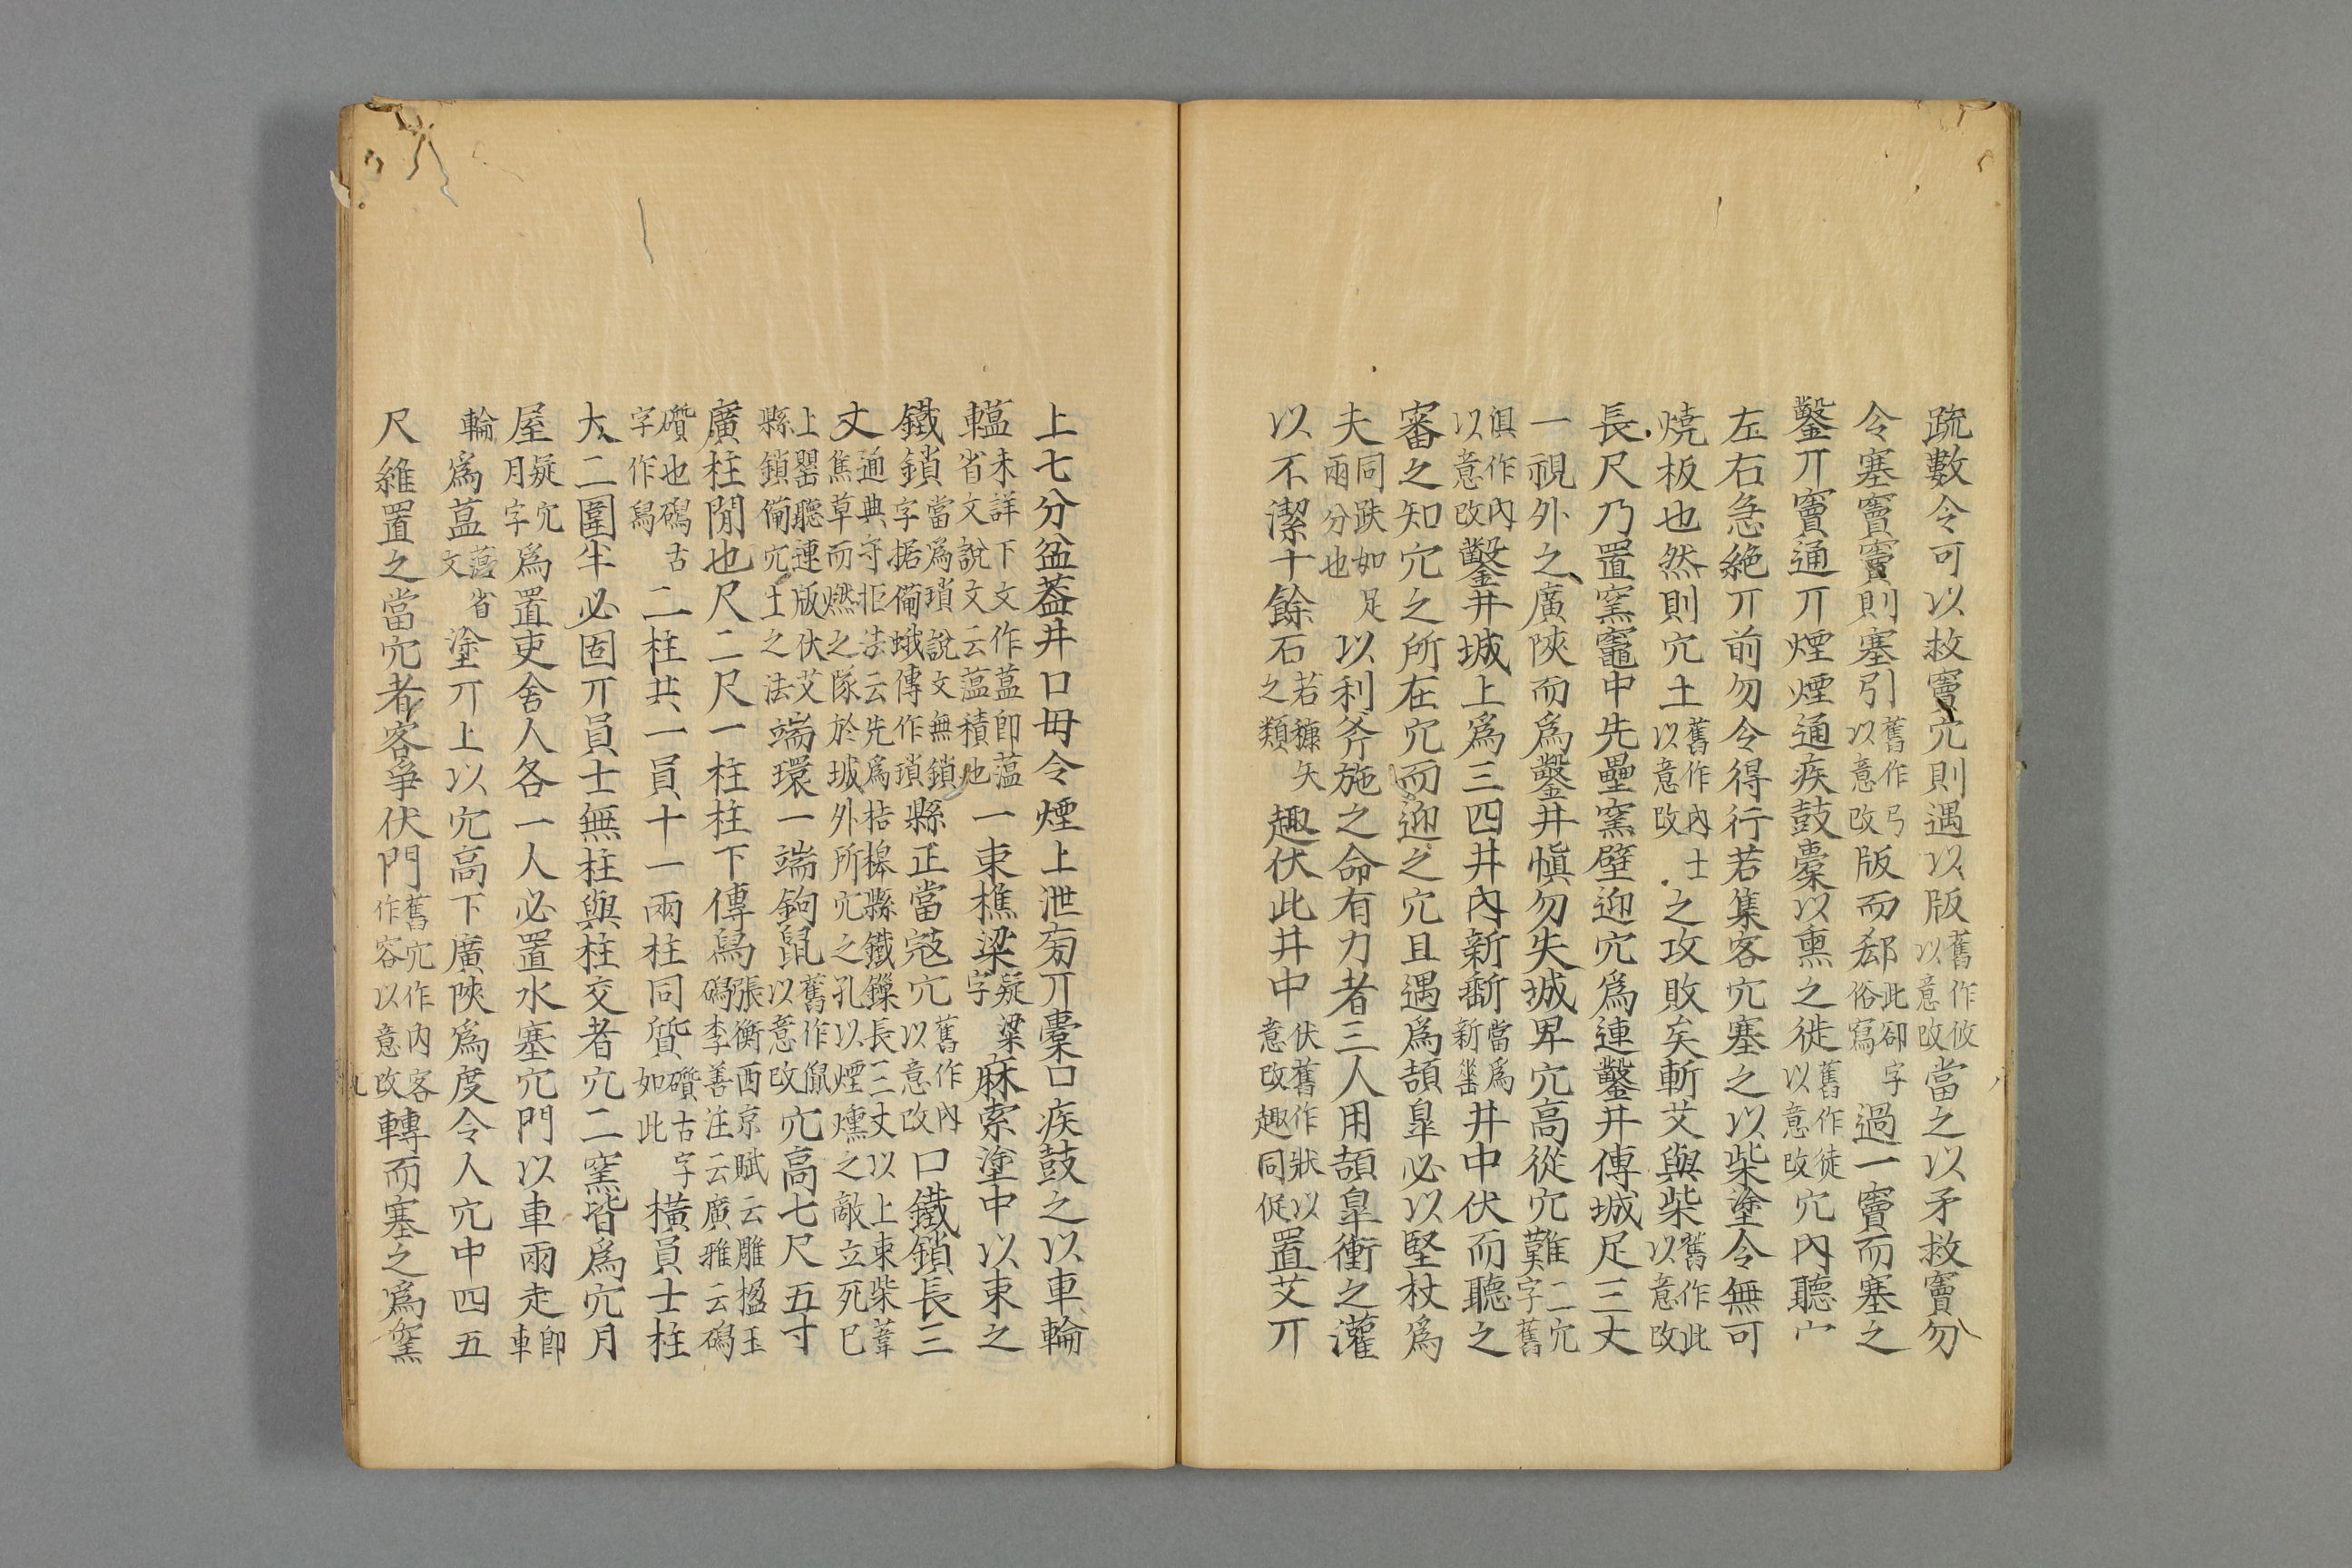 疏數令可以救竇穴則遇以版舊作攸以意改當之以矛救竇勿
令塞竇竇則塞引舊作弓以意改版而郄此卻字俗寫過一竇而塞之
鑿丌竇通丌煙煙通疾鼓橐以熏之徙舊作徒以意改穴內聽宀
左右急絶丌前勿令得行若集客穴塞之以柴塗令無可
燒板也然則穴土舊作內土以意改之攻敗矣斬艾與柴舊作此以意改
長尺乃置窯竈中先壘窯壁迎穴為連鑿井傅城足三丈
一視外之廣陝而為鑿井愼勿失城卑穴高從穴難二穴字舊
俱作內以意改鑿井城上為三四井內新斲當為新甾井中伏而聽之
審之知穴之所在穴而迎之穴且遇為頡皐必以堅杖為
夫同趺如足兩分也以利斧施之命有力者三人用頡皐衝之灌
以不潔十餘石若糠矢之類趣伏此井中伏舊作狀以意改趣同促置艾丌
上七分盆葢井口毋令煙上泄旁丌橐口疾鼓之以車輪
轀未詳下文作藴卽薀省文說文云薀積也一束樵梁疑梁字麻索塗中以束之
鐵鎖當為瑣說文無鎖字据備蛾傳作瑣縣正當寇穴舊作內以意改口鐵鎖長三
丈通典守拒法云先為桔槔縣鐵鏁長三丈以上束柴葦焦草而燃之隊於城外所穴之孔以煙燻之敵立死已
上罌聽連版伏艾縣鎖備穴土之法端環一端鉤鼠舊作鼠以意改穴高七尺五寸
廣柱閒也尺二尺一柱柱下傅舄張衡西京賦云雕楹玉磶李善注云廣雅云磶
礩也磶古字作舄二柱共一員十一兩柱同質礩古字如此橫員士柱
大二圍半必固丌員士無柱與柱交者穴二窯皆為穴月
屋疑穴月字為置吏舍人各一人必置水塞穴門以車兩走卽車
輪為藴薀省文塗丌上以穴高下廣陝為度令人穴中四五
尺維置之當穴者客爭伏門舊穴作內客作容以意改轉而塞之為窯